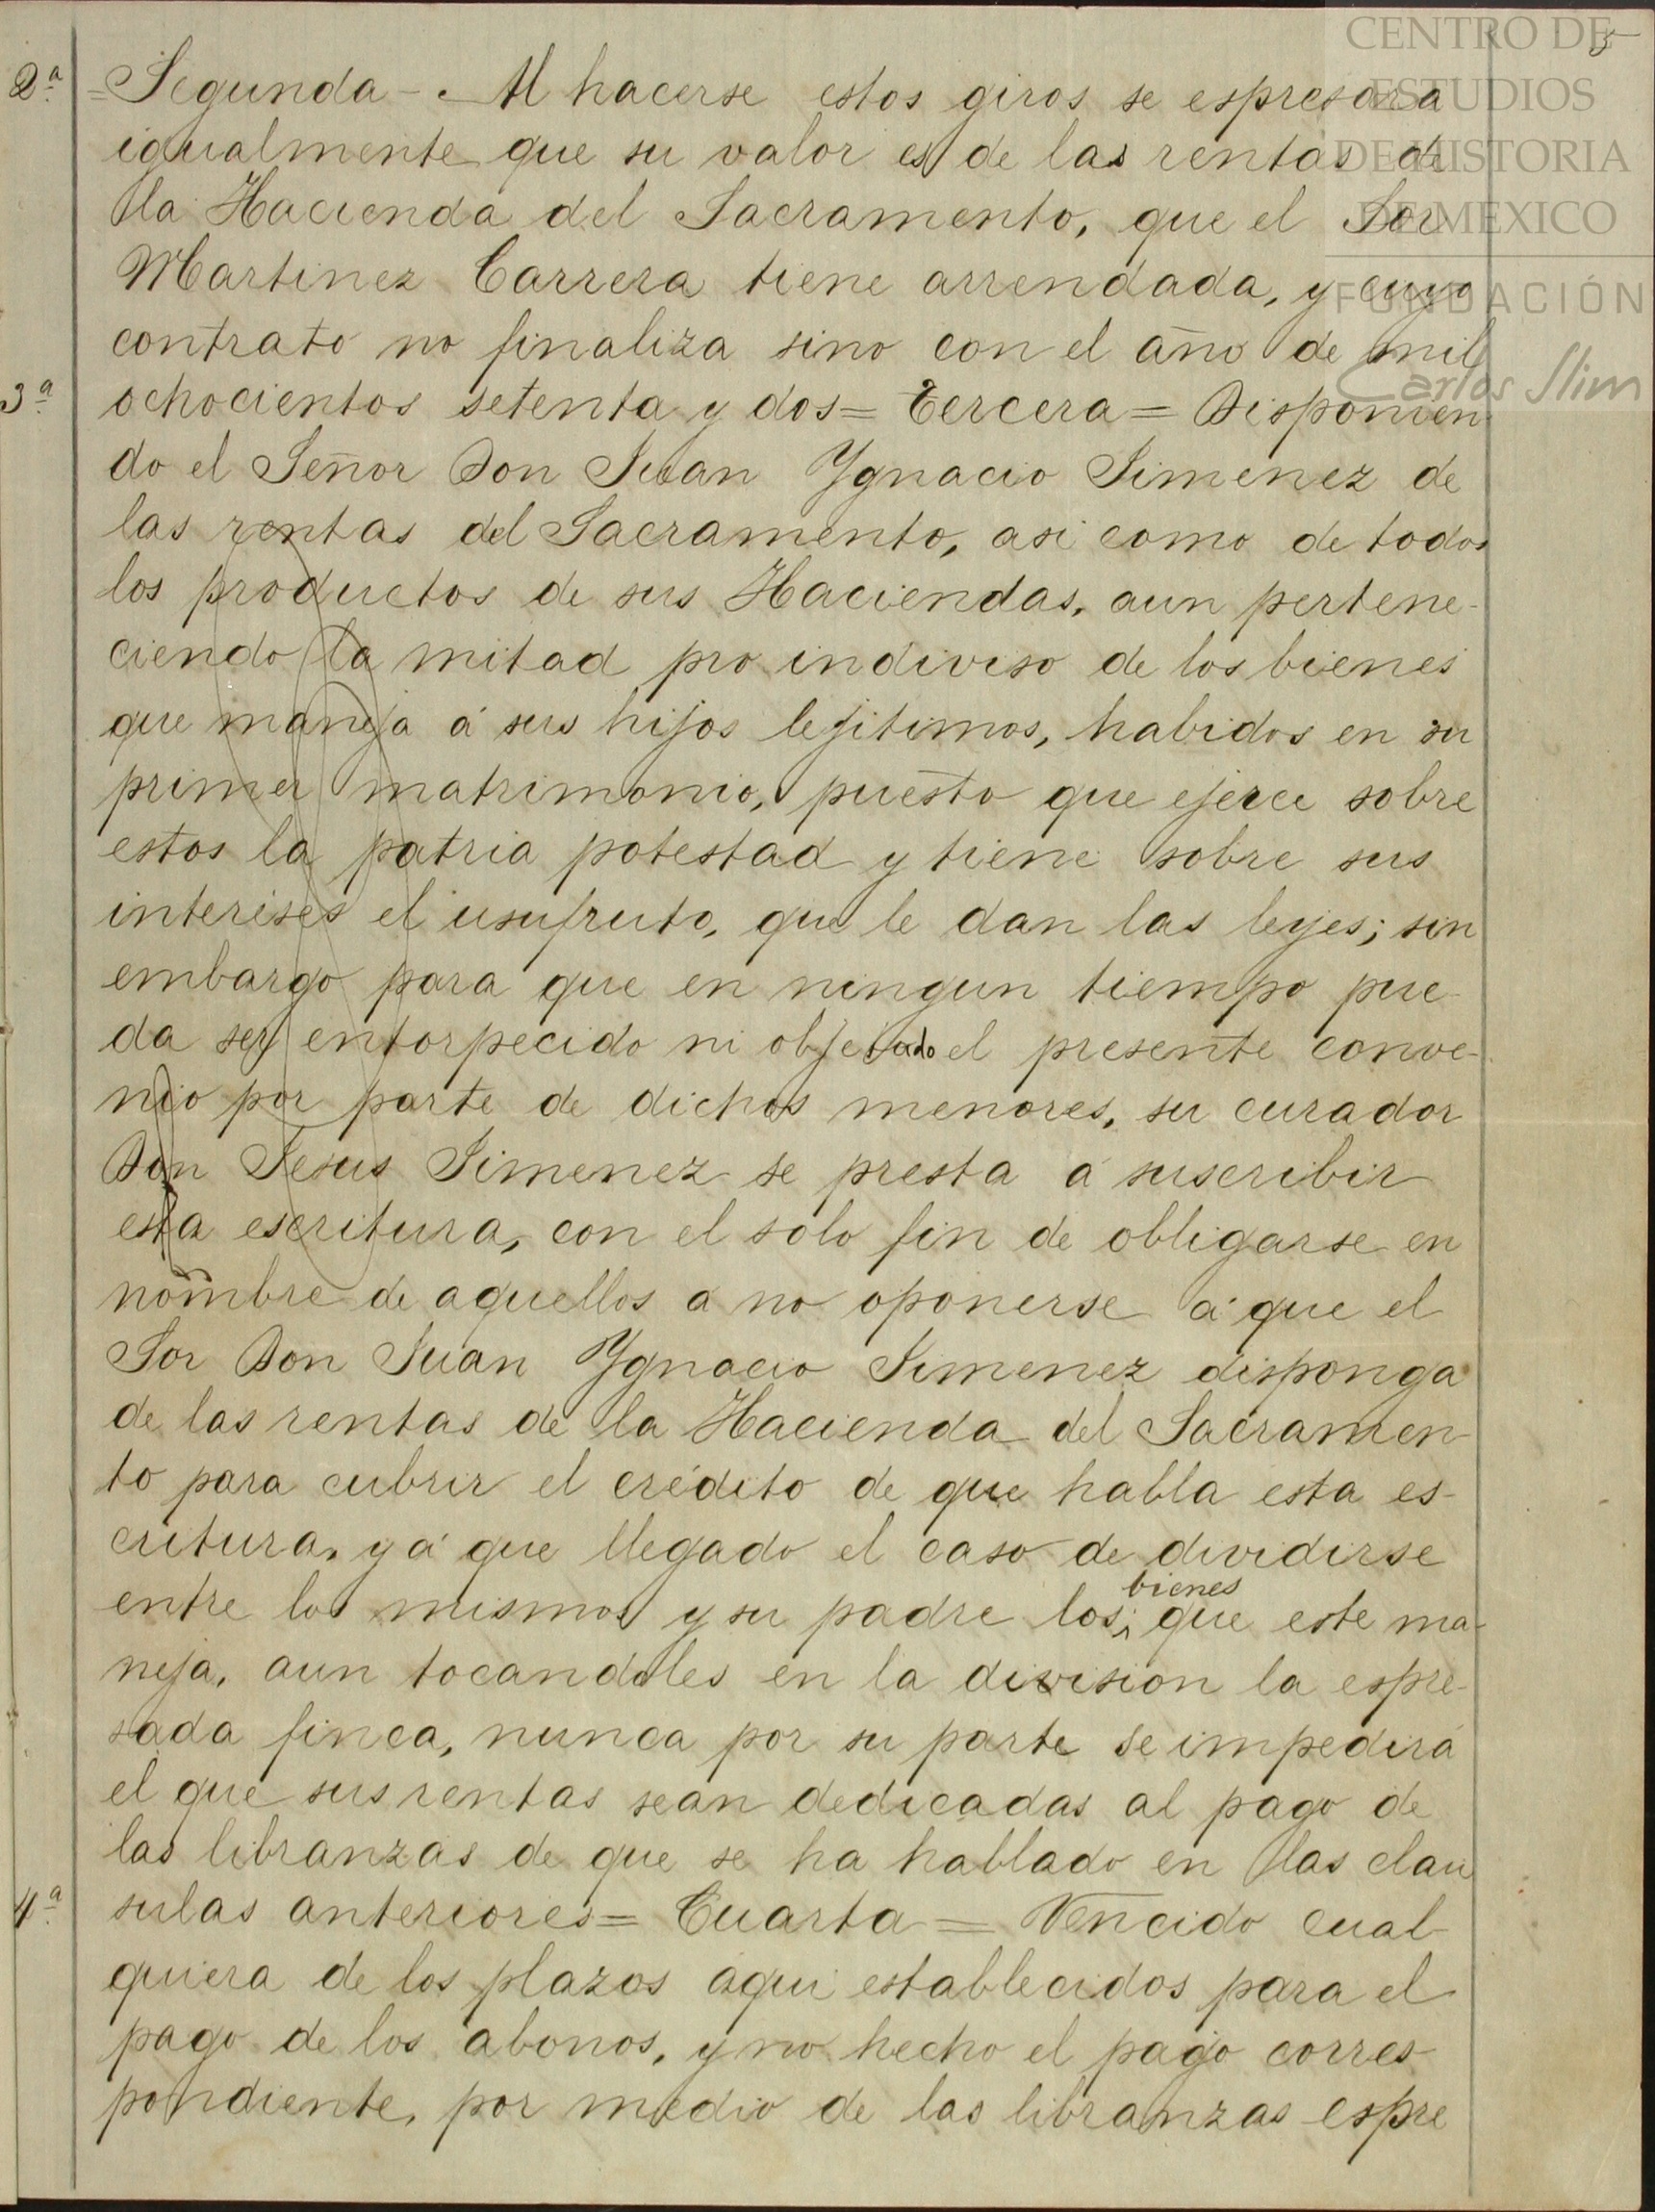 CENTRO DE
ESTUDIOS
DE HISTORIA
DE MEXICO
FUNDACIÓN
Carlos Slim
2ª. =Segunda - Al hacerse estos giros se espresara
igualmente que su valor es de las rentas de
la Hacienda del Sacramento, que el Sor
Martinez Carrera tiene arrendada, y cuyo
contrato no finaliza sino con el año de mil
3ª. ochocientos setenta y dos= Tercera= Disponien-
do el Señor Don Juan Ygnacio Jimenez de
las rentas del Sacramento, asi como de todos
los productos de sus Haciendas, aun pertene-
ciendo la mitad pro indiviso de los bienes
que maneja á sus hijos lejitimos, habidos en su
primer matrimonio, puesto que ejerce sobre
estos la patria potestad y tiene sobre sus
interéses el usufruto, que le dan las leyes; sin
embargo para que en ningun tiempo pue-
da ser entorpecido ni objetado el presente conve-
nio por parte de dichos menores, su curador
Don Jesus Jimenez se presta á suscribir
esta escritura, con el solo fin de obligarse en
nombre de aquellos a no oponerse á que el
Sor Don Juan Ygnacio Jimenez disponga
de las rentas de la Hacienda del Sacramen-
to para cubrir el crédito de que habla esta es-
critura, y á que llegado el caso de dividirse
bienes
entre los mismos y su padre los, que este ma-
neja, aun tocandoles en la division la espre-
sada finca, nunca por su parte se impedirá
el que sus rentas sean dedicadas al pago de
las libranzas de que se ha hablado en las clau
4ª. sulas anteriores= Cuarta= Vencido cual-
quiera de los plazos aqui establecidos para el
pago de los abonos, y no hecho el pago corres-
pondiente, por medio de las libranzas espre